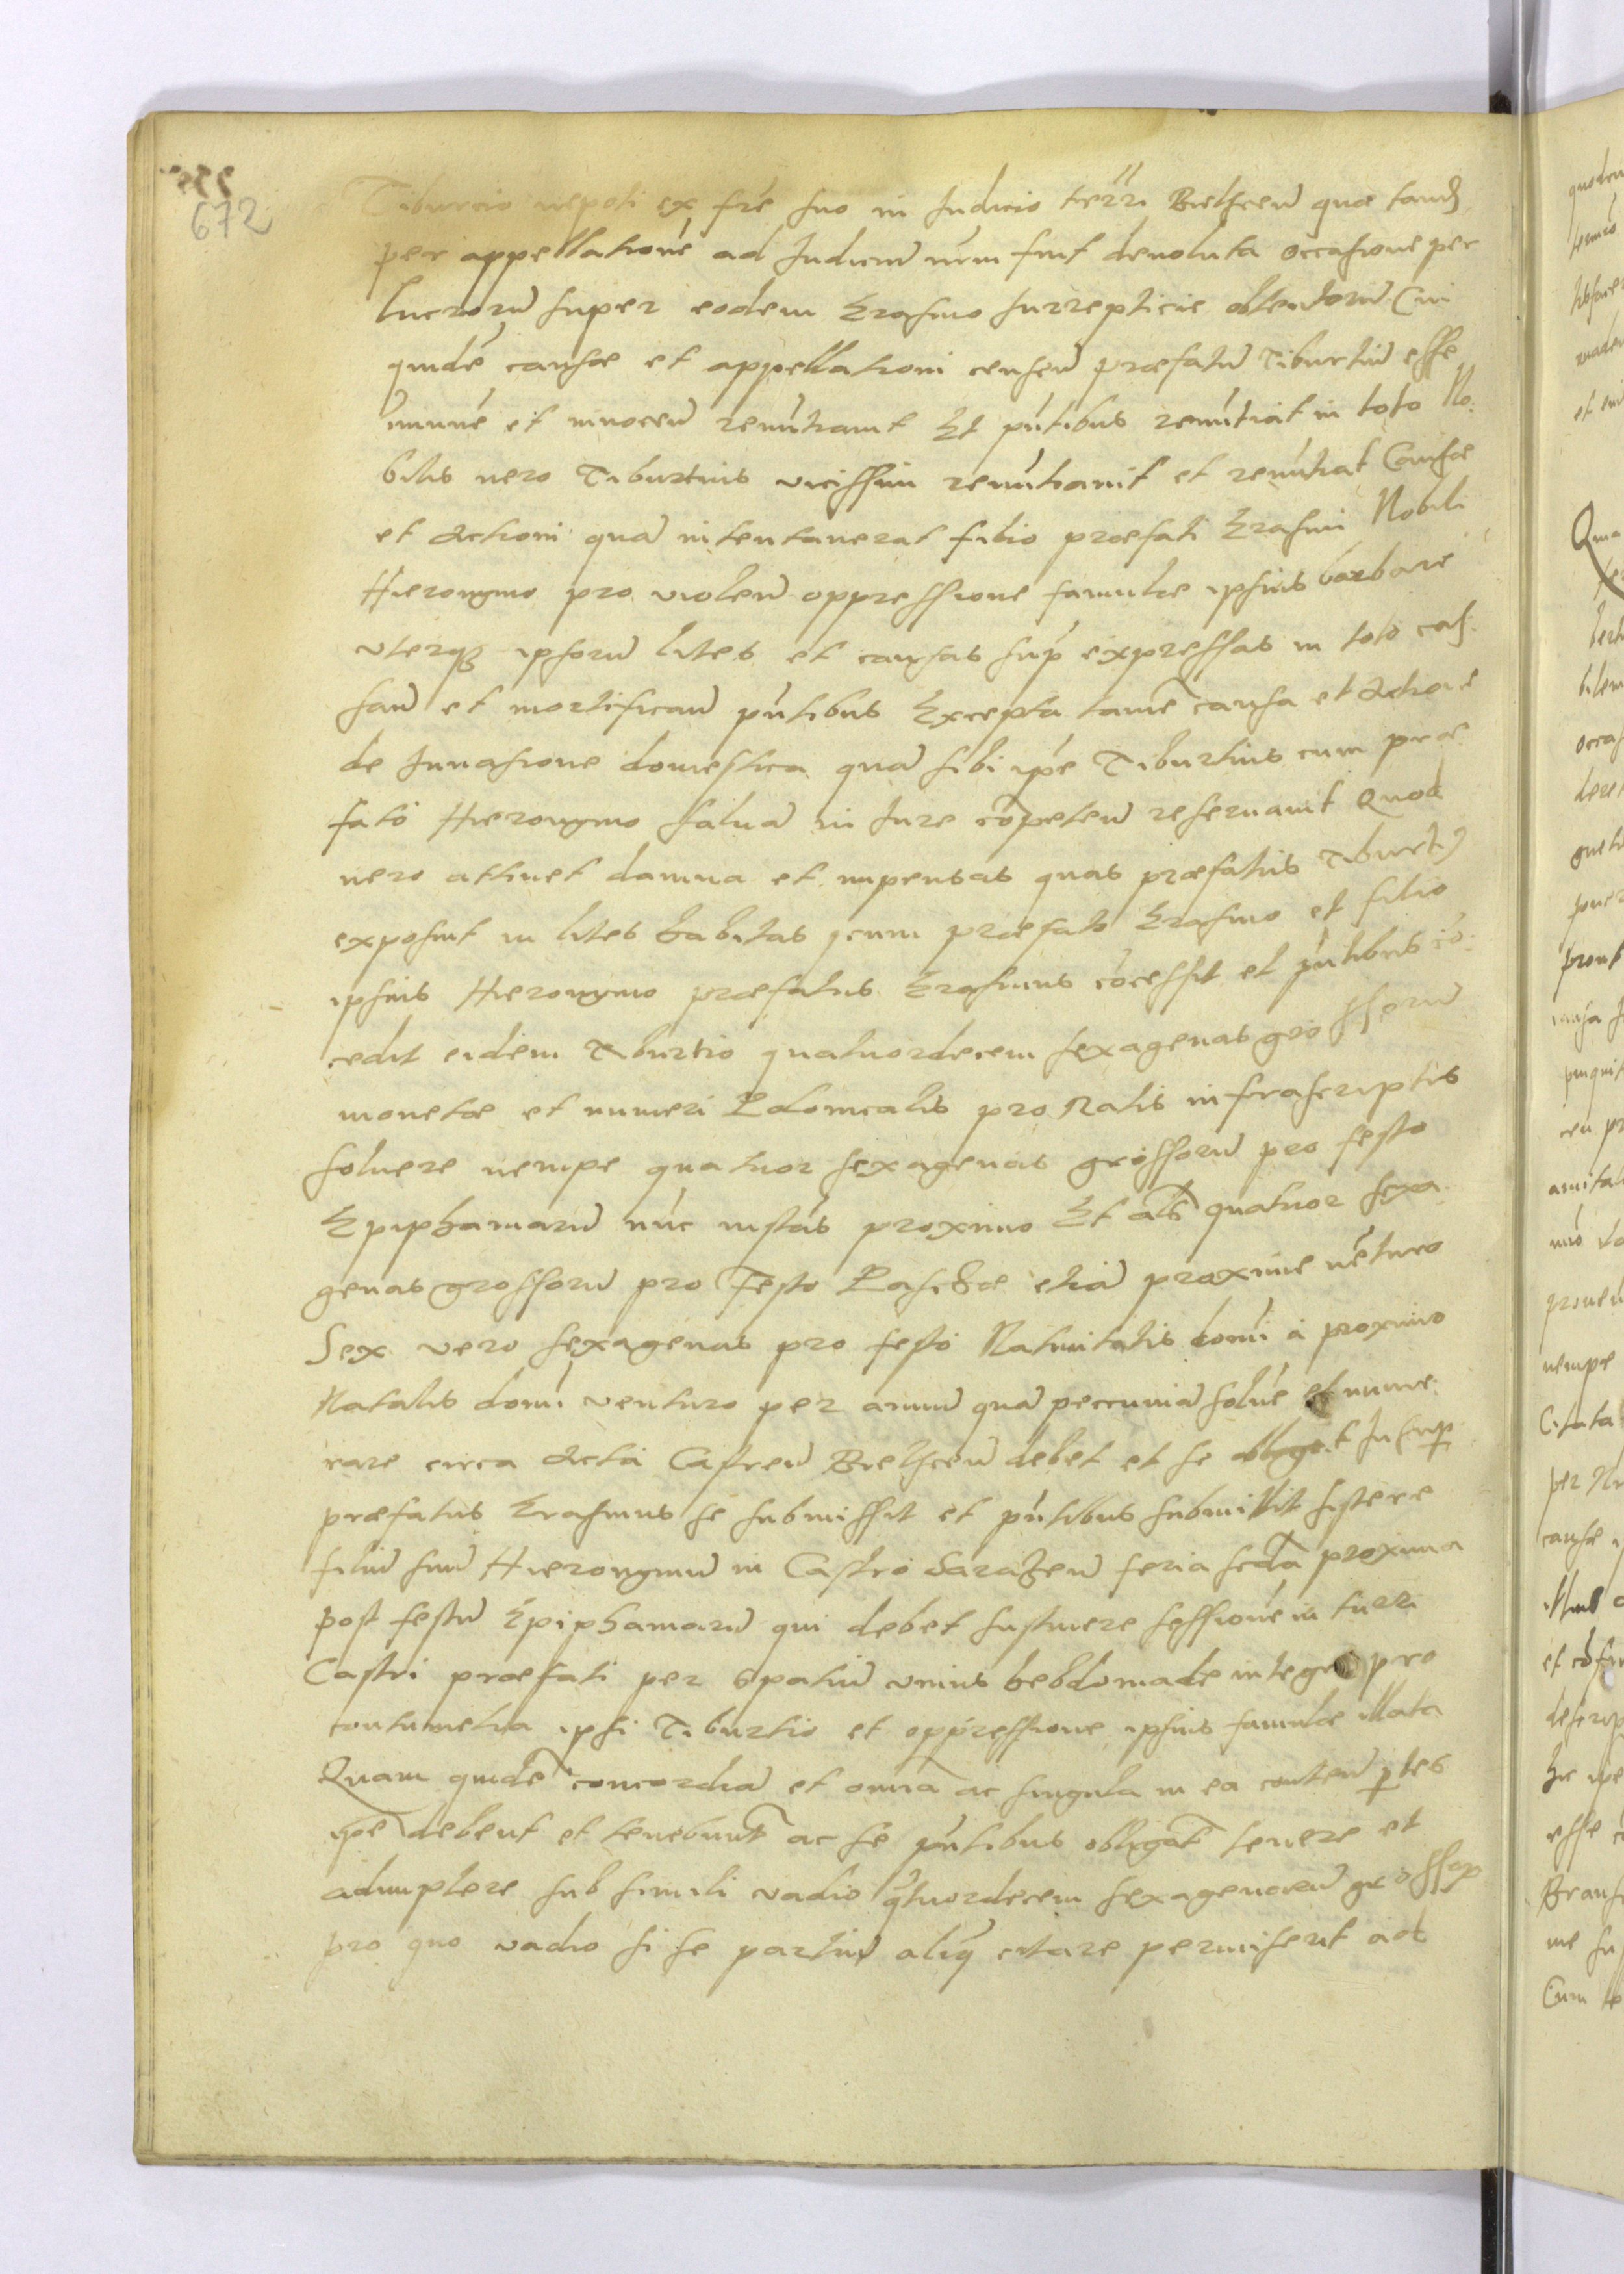 672
Tiburcio nepoti ex fre̅ suo in Judicio terr̅ri Bielscen̅ quæ tand̅
per appellationé ad Judiciu̅ nr̅m fuit deuoluta occasione per
lucroru̅ super eodem Erasmo surrepticie obtentoru̅ Cui
quidé causæ et appellationi censen̅ præfatu̅ Tiburtiu̅ esse
im̅uné et innocen̅ renu̅tiauit Et pn̅tibus renu̅tiat in toto No:
bilis uero Tiburtius vicissim renu̅tiauit et renu̅tiat Causæ
et Actioni qua̅ intentauerat filio præfati Erasmi Nobili
Hieronymo pro violen̅ oppressione famulæ ipsius barbaré
vterq3 ipsoru̅ lites et causas sup̅ expressas in toto cas:
san̅ et mortifican̅ pn̅tibus Excepta tame̅ causa et Actione
de Inuasione domestica qua̅ sibi ip̅e Tiburtius cum præ
fato Hieronymo salua̅ in Jure co̅peten̅ reseruauit Quod
uero attinet damna et impensas quas præfatus Tiburtỹ
exposuit in lites habitas cum præfato Erasmo et filio
ipsius Hieronymo præfatus Erasmus co̅cessit et pn̅tibus co̅:
cedit eidem Tiburtio quatuordecem sexagenas grossoru̅
monetæ et numeri Polonicalis pro Ratis infrascriptis
soluere nempe quatuor sexagenas grossoru̅ pro festo
Epiphaniaru̅ nu̅c insta̅s proximo Et al̅s quatuor sexa
genas grossoru̅ pro Festo Paschæ etia̅ proxime ue̅turo
Sex vero sexagenas pro festo Natiuitatis domi̅ a proximo
Natalis domi̅ venturo per annu̅ qua̅ peccunia̅ solue̅ et nume
rare circa Acta Castren̅ Bielscen̅ debet et se obligat Insup̅
præfatus Erasmus se submissit et pn̅tibus submittit sistere
filiu̅ suu̅ Hieronymu̅ in Castro Sarazen̅ feria secd̅a proxima
post festu̅ Epiphaniaru̅ qui debet sustinere sessioné in turri
Castri præfati per spatiu̅ vnius hebdomade integre pro
contumelia ipsi Tiburtio et oppressione ipsius famulæ illata
Quam quide̅ concordia̅ et omnia ac singula in ea conten̅ p̱tes
ip̅e debent et tenebunt̅ ac se pn̅tibus obligat̅ tenere et
adimplere sub simili vadio q̅tuordecem sexagenaru̅ grossoꝝ
pro quo vadio si se partiu̅ aliq̅ citare permiserit ad